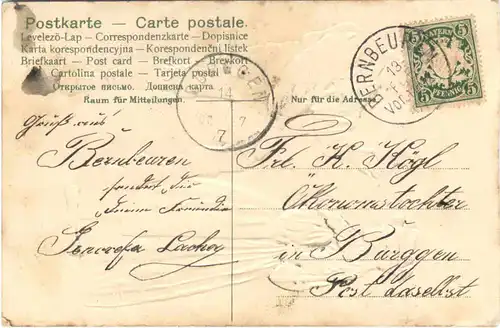 Postkarte – Carte postale.
Levelező-Lap – Correspondenzkarte – Dopisnice
Karta korespondencyjna – Korespondenční lístek
Briefkaart – Post card – Brefkort – Brevkort
Cartolina postale – Tarjeta postal
Открытое письмо. Дописна карта
Raum für Mitteilungen.
Nur für die Adresse.
BERNBEU
13
Vor
BAYERN
5 5
PFENNIG
14
7
7
Gruß aus
Bernbeuren
sendet Dir
Deine Freundin
Genovefa
Frl. K. Högl
Ökonomstochter
in Burggen
Post daselbst